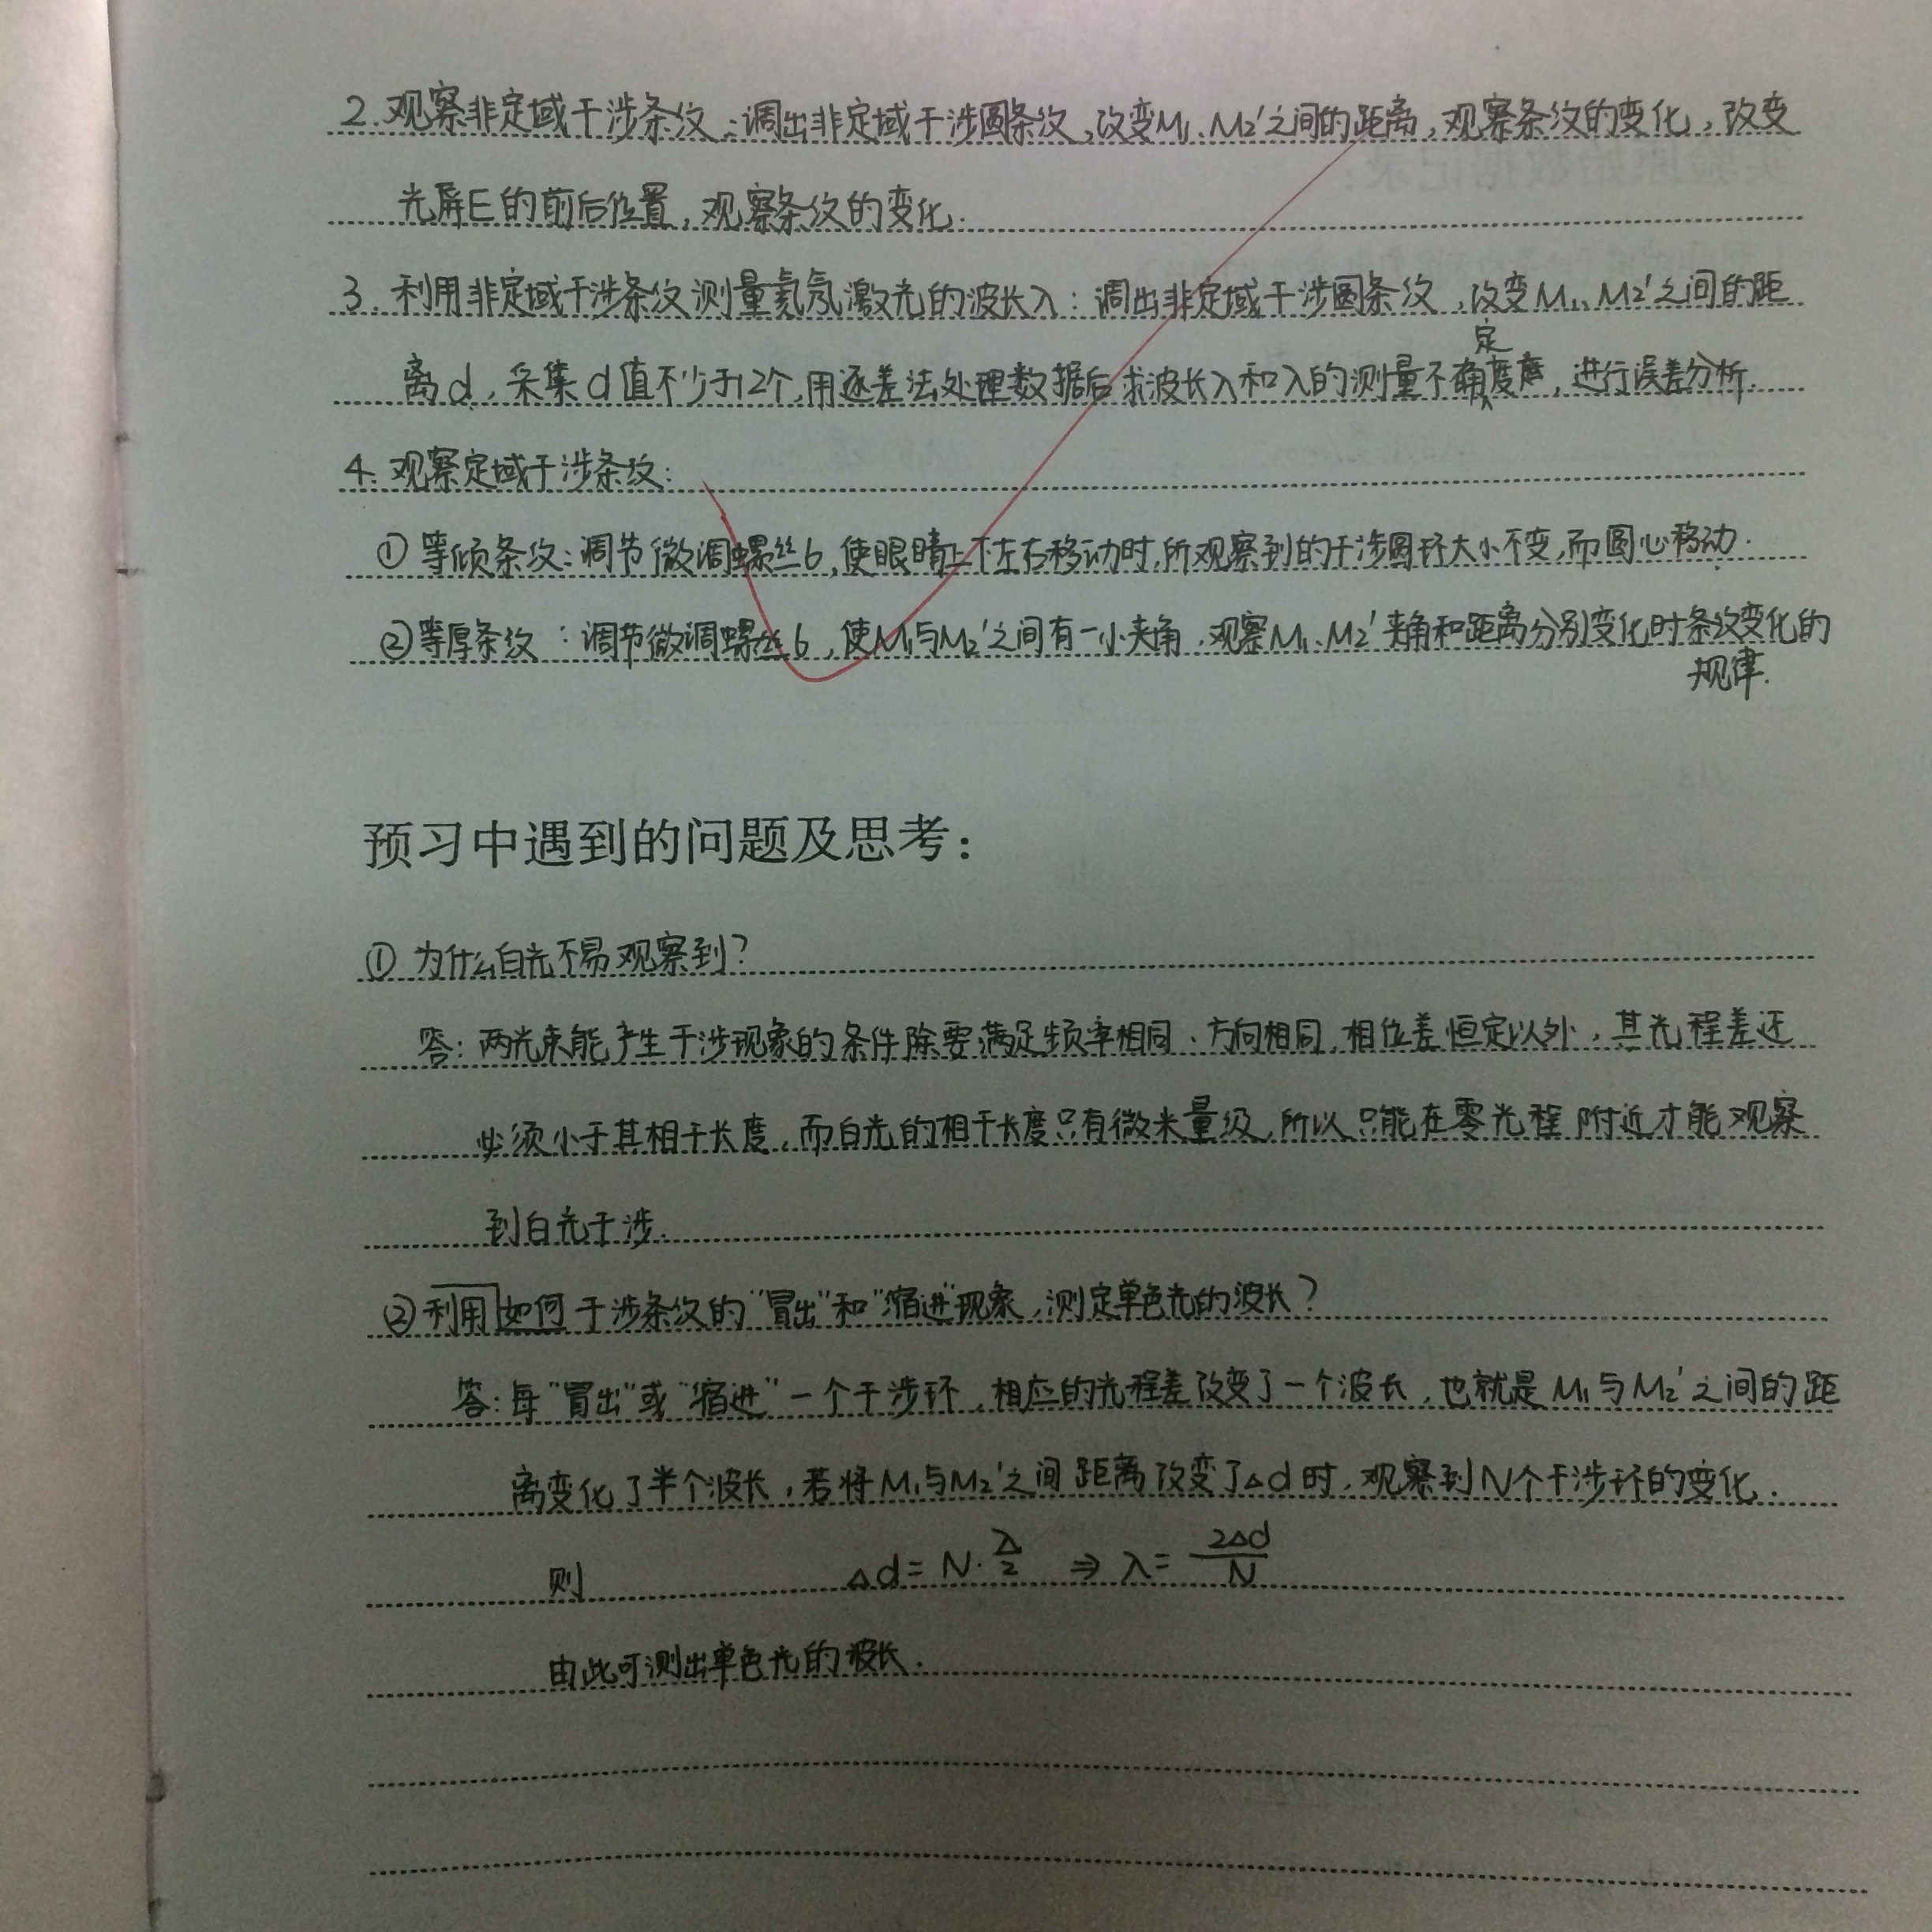 2.观察非定域干涉条纹:调出非定域干涉圆条纹,改变M₁、M₂'之间的距离,观察条纹的变化,改变
光屏E的前后位置,观察条纹的变化.
3.利用非定域干涉条纹测量氦氖激光的波长λ:调出非定域干涉圆条纹,改变M₁、M₂'之间的距
定
离d,采集d值不少于12个,用逐差法处理数据后求波长λ和λ的测量不确度,进行误差分析.
4.观察定域干涉条纹:
①等倾条纹:调节微调螺丝6,使眼睛上下左右移动时,所观察到的干涉圆环大小不变,而圆心移动.
②等厚条纹:调节微调螺丝6,使M₁与M₂'之间有一小夹角,观察M₁、M₂'夹角和距离分别变化时条纹变化的
规律.
预习中遇到的问题及思考:
①为什么白光不易观察到?
答:两光束能产生干涉现象的条件除要满足频率相同、方向相同,相位差恒定以外,其光程差还
必须小于其相干长度,而白光的相干长度只有微米量级,所以只能在零光程附近才能观察
到白光干涉.
②利用如何干涉条纹的"冒出"和"缩进"现象,测定单色光的波长?
答:每"冒出"或"缩进"一个干涉环,相应的光程差改变了一个波长,也就是M₁与M₂'之间的距
离变化了半个波长,若将M₁与M₂'之间距离改变了△d时,观察到N个干涉环的变化.
则 △d=N·λ/2 ⇒ λ=2△d/N
由此可测出单色光的波长.